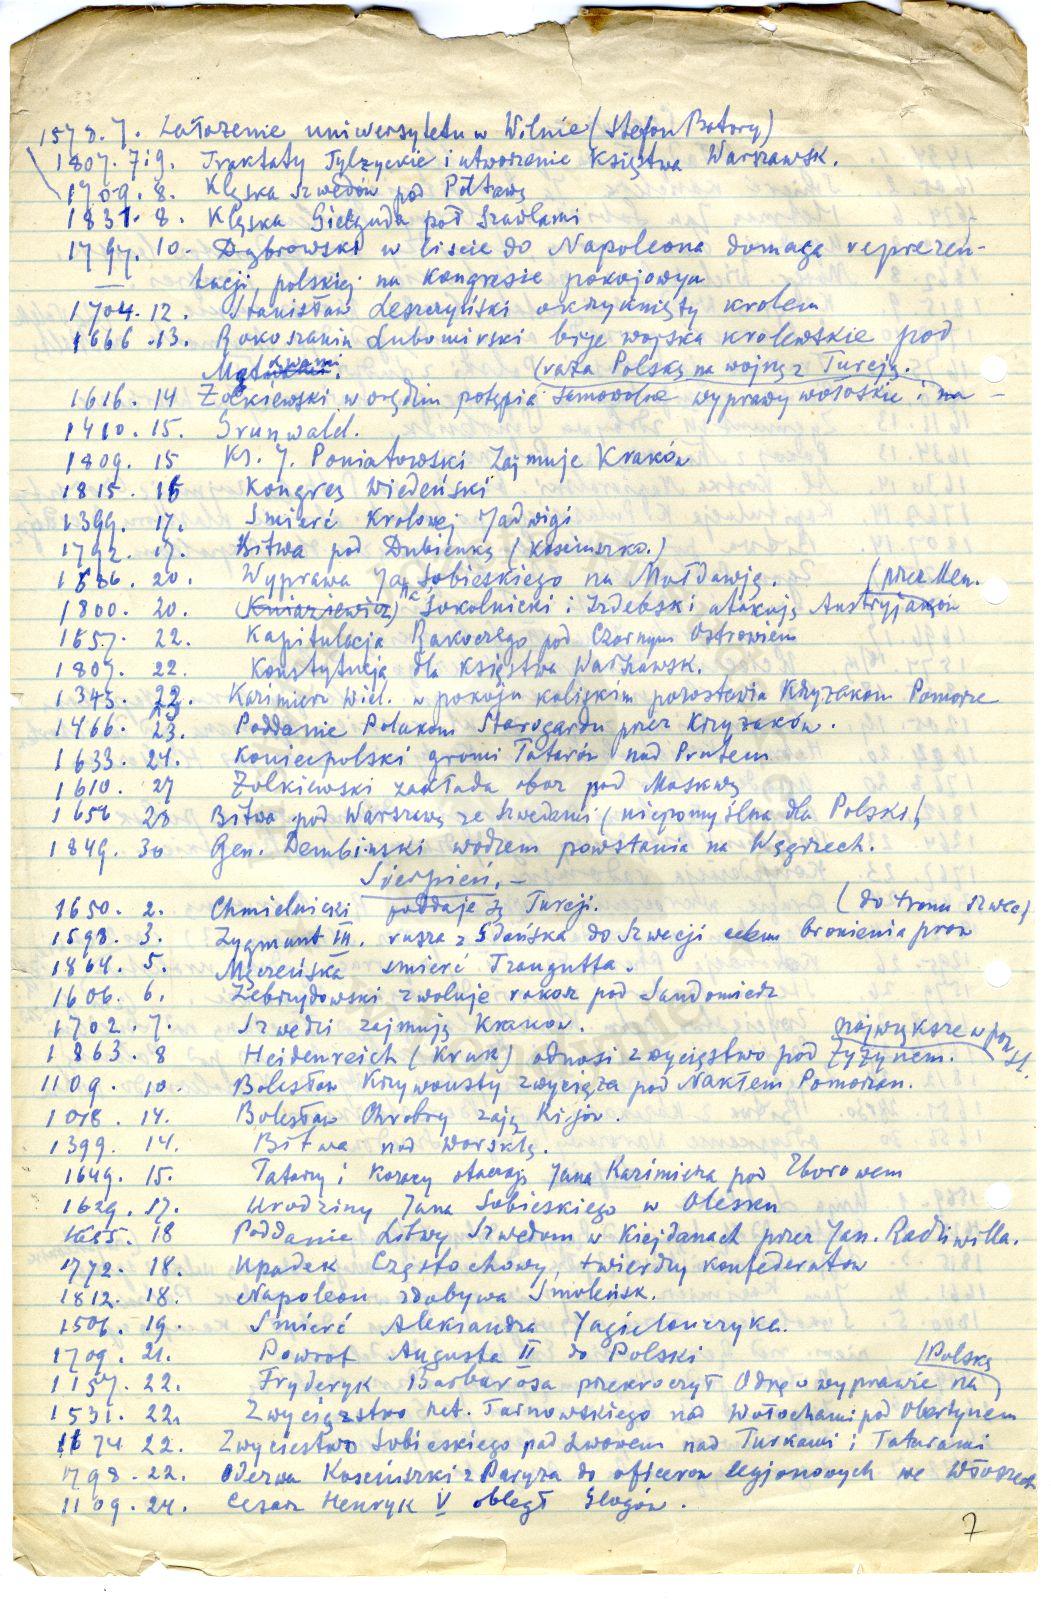 1578. 7. Założenie uniwersytetu w Wilnie (Stefan Batory)
1807. 7 i 9. Traktaty Tylzyckie i utworzenie Księstwa Warszawsk.
1709. 8. Klęska Szwedów pod Połtawą
1831. 8. Klęska Giełguda pod Szawlami
1797. 10. Dąbrowski w liście do Napoleona domaga reprezen-
tacji, polskiej na kongresie pokojowym
1704. 12. Stanisław Leszczyński okrzyknięty krolem
1666. 13. Rokoszanin Lubomirski bije wojska krolewskie pod
Mątwami. (raża Polskę na wojnę z Turcją.
1616. 14 Żółkiewski w orędziu potępia samowolne wyprawy wołoskie i na-
1410. 15. Grunwald.
1809. 15 Ks. J. Poniatowski zajmuje Kraków
1815. 15 Kongres Wiedeński
1399. 17. Smierć Krolowej Jadwigi
1792. 17. Bitwa pod Dubienką (Kosciuszko.)
1686. 20. Wyprawa Jana Sobieskiego na Mołdawję. (przez Men.
1800. 20. (Kniaziewicz) Sokolnicki i Izdebski atakują Austryjaków
1657. 22. Kapitulacja Rakoczego pod Czarnym Ostrowiem
1807. 22. Konstytucja dla Księstwa Warszawsk.
1343. 23. Kazimierz Wiel. w pokoju kaliskim pozostawia Krzyżakom Pomorze
1466. 23. Poddanie Polakom Starogardu przez Krzyżaków.
1633. 24. Koniecpolski gromi Tatarów nad Prutem
1610. 27 Żołkiewski zakłada oboz pod Moskwą
1656 28 Bitwa pod Warszawą ze Szwedami (niepomyślna dla Polski)
1849. 30 Gen. Dembinski wodzem powstania na Węgrzech.
Sierpień.-
1650. 2. Chmielnicki poddaje się Turcji. (do tronu szwec)
1598. 3. Zygmunt III. rusza z Gdańska do Szwecji celem bronienia praw
1864. 5. Męczeńska smierć Traugutta.
1606. 6. Zebrzydowski zwołuje rokosz pod Sandomierz
1702. 7. Szwedzi zajmują Krakow. największe w pow st.
1863. 8 Heidenreich (Kruk) odnosi zwycięstwo pod Żyżynem.
1109. 10. Bolesław Krzywousty zwycięża pod Nakłem Pomorzan.
1018. 14. Bolesław Chrobry zają Kijów.
1399. 14. Bitwa nad Worsklą.
1649. 15. Tatarzy i Kozacy otaczają Jana Kazimierza pod Zborowem
1629. 17. Urodziny Jana Sobieskiego w Olesku
1655. 18 Poddanie Litwy Szwedom w Kiejdanach przez Jan. Radziwiłła.
1772. 18. Upadek Częstochowy, twierdzy konfederatow
1812. 18. Napoleon zdobywa Smoleńsk.
1506. 19. Smierć Aleksandra Jagielończyka.
1709. 21. Powrot Augusta II do Polski (Polskę
1157. 22. Fryderyk Barbarosa przekroczył Odrę w wyprawie na
1531. 22. Zwycięzstwo het. Tarnowskiego nad Wołochami pod Obertynem
1674. 22. Zwyciestwo Sobieskiego pod Lwowem nad Turkami i Tatarami
1798. 22. Odezwa Kosciuszki z Paryza do oficerow legjonowych we Włoszech
1109. 24. Cesarz Henryk V obległ Głogów.
7